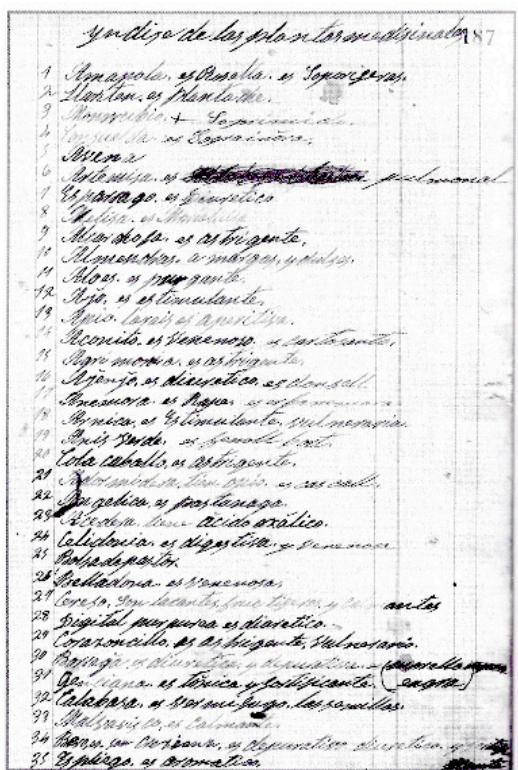 Yndize de las plantas medisinales 187
1 Amapola. es Rosella. es Soporigeras.
2 Llanten. es Plantathe.
3 +
4 es
5 Avena
6 Artemisa. es pulmonal
7 Esparago. es Diuretico
8 Melisa. es
9 Alcachofa. es astrigente.
10 Almendras. amargas. y dulses.
11 Aloes. es purgante.
12 Ajo. es estimulante.
13 Apio. es aperitiva.
14 Aconito. es venenoso. es
15 Agrimonia. es astrigente.
16 Ajenjo. es diuretico. es donsell
17 es
18 Arnica. es Estimulante. vulneraria.
19 Anis Verde. es fenoll bort.
20 Cola caballo. es astrigente.
21 Adormidera. tien opio. es cascall.
22 Angelica. es pastanaga.
23 Acedera. tiene ácido oxálico.
24 Celidonia. es digestiva y venenosa
25 Bolsadepastor.
26 Belladona. es venenosa.
27 Cerezo. son lacsantes, y calmantes
28 Digital purpurea es diuretico.
29 Corazoncillo. es astrigente, vulnerario.
30 Borraja. es diuretica y depurativa
31 Genciana. es tónica y fortificante. (engra)
32 Calabasa. es vermifugo. las semillas.
33 Malvavisco. es calmante.
34 Berros. es depurativo diuretico. y
35 Espliego. es aromatico.